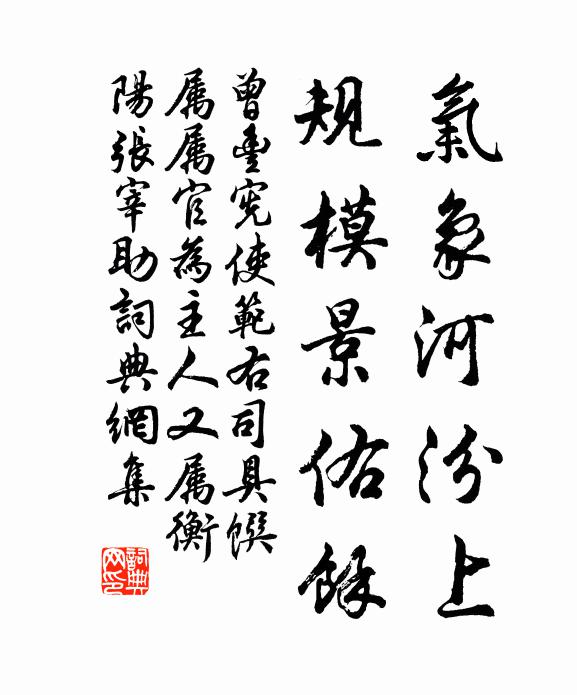 氣象河汾上
規模景佑餘
曾豐宪使範右司具饌
属属官為主人又属衡
陽張宰助詞典網集
詞典网印